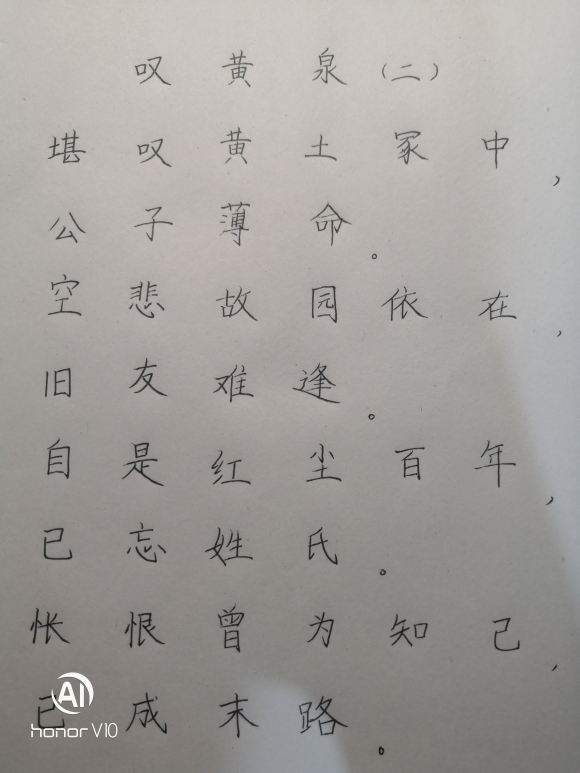 叹黄泉（二）
堪叹黄土冢中，
公子薄命。
空悲故园依在，
旧友难逢。
自是红尘百年，
已忘姓氏。
怅恨曾为知己，
已成末路。
AI
honor V10